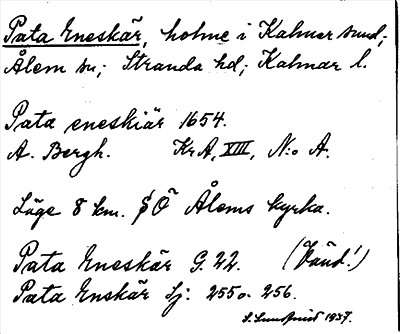 Pata Eneskär, holme i Kalmar sund;
Ålem sn; Stranda hd; Kalmar l.
Pata eneskiär 1654.
A. Bergh. KrA, XIII, N:o A.
Läge 8 km. SÖ Ålems kyrka.
Pata Eneskär G. 22. (Vänd!)
Pata Enskär Sj: 255 o. 256.
1937.